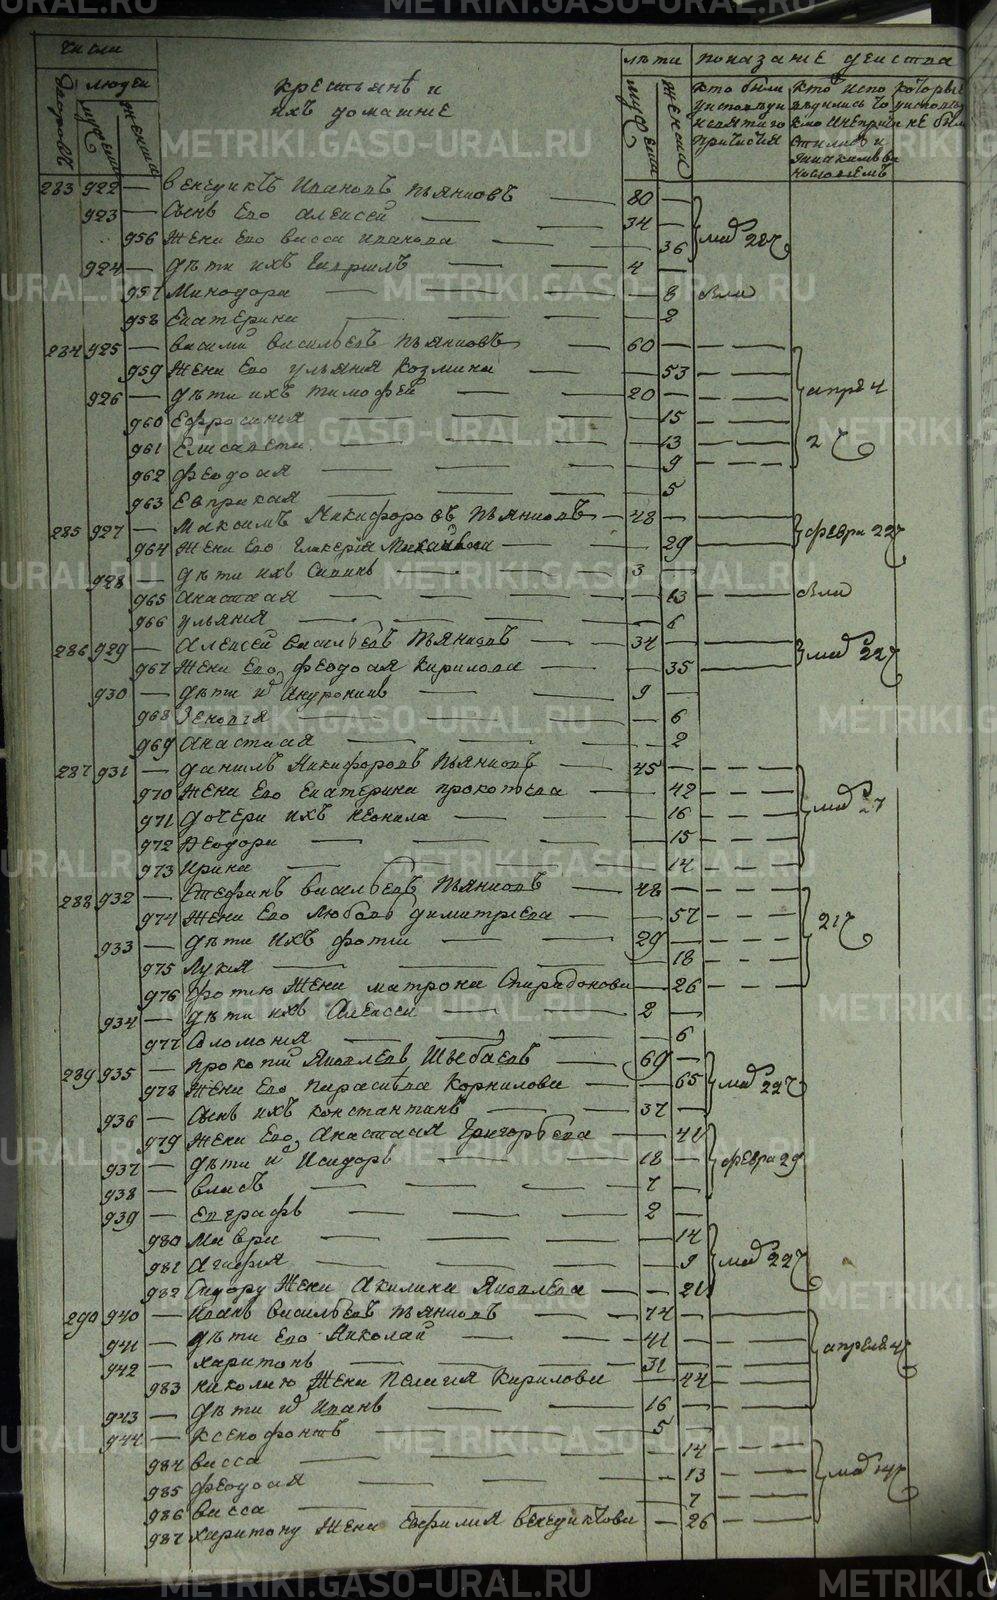 числи
людеи
дворовъ
мужеска
женска
крестьянѣ и
ихъ домашние
лѣти
мужеска
женска
показание деиства
кто были у исповеди и святаго причастия
кто испо ведились
283 922 — Венедиктъ Ивановъ Пьянковъ — 80 —
923 — Сынъ Его Алексей — 34 —
956 Жена Его Васса Иванова — 36 } маiя 22 ч
924 — дѣти ихъ Гаврiилъ — 4 —
957 Минодора — 8
958 Екатерина — 2
284 925 — Василий Васильевъ Пьянковъ — 60 —
959 Жена Его Ульяния Козмина — 53
926 — дѣти ихъ Тимофей — 20 — } апреля
960 Ефросиния — 15
961 Елисавета — 13 2 ч
962 Феодосия — 9
963 Евпраксия — 5
285 927 — Максимъ Никифоровъ Пьянковъ — 48 —
964 Жена Его Гликерiя Михайлова — 29 } февраля 22 ч
928 — дѣти ихъ Силинъ — 3 —
965 Анастасия — 13
966 Ульяния — 6
286 929 — Алексей Васильевъ Пьянковъ — 34 —
967 Жена Его Феодосия Кирилова — 35 } маiя 22 ч
930 — дѣти их Андроникъ — 9 —
968 Зеновия — 6
969 Анастасия — 2
287 931 — Данилъ Никифоровъ Пьянковъ — 45 —
970 Жена Его Екатерина Прокопьева — 42 } маiя 2 ч
971 дочери ихъ Неонила — 16
972 Феодора — 15
973 Ирина — 14
288 932 — Стефанъ Васильевъ Пьянковъ — 48 —
974 Жена Его Любовь Димитриева — 57 } 21 ч
933 — дѣти ихъ Фотий — 29 —
975 Лукия — 18
976 Фотию Жена Матрона Спиридонова — 26
934 — дѣти ихъ Алексей — 2 —
977 Соломония — 6
289 935 — Прокопий Яковлевъ Шыбаевъ — 69 —
978 Жена Его Параскева Корнилова — 65 } маiя 22 ч
936 — Сынъ ихъ Константинъ — 37 —
979 Жена Его Анастасия Григорьева — 41
937 — дѣти их Исидоръ — 18 — } февраля 29
938 — Власъ — 7 —
939 — Евграфъ — 2 —
980 Мавра — 14
981 Агафия — 9 } маiя 22 ч
982 Сидору Жена Акилина Яковлева — 21
290 940 — Иванъ Васильевъ Пьянковъ — 74 —
941 — дѣти Его Николай — 41 — } апреля 4 ч
942 — Харитонъ — 31 —
983 Николаю Жена Пелагия Кирилова — 44
943 — дѣти их Иванъ — 16 —
944 — Ксенофонтъ — 5 —
984 Васса — 14
985 Феодосия — 13
986 Васса — 7
987 Харитону Жена Евфимия Венедиктова — 26
METRIKI.GASO-URAL.RU